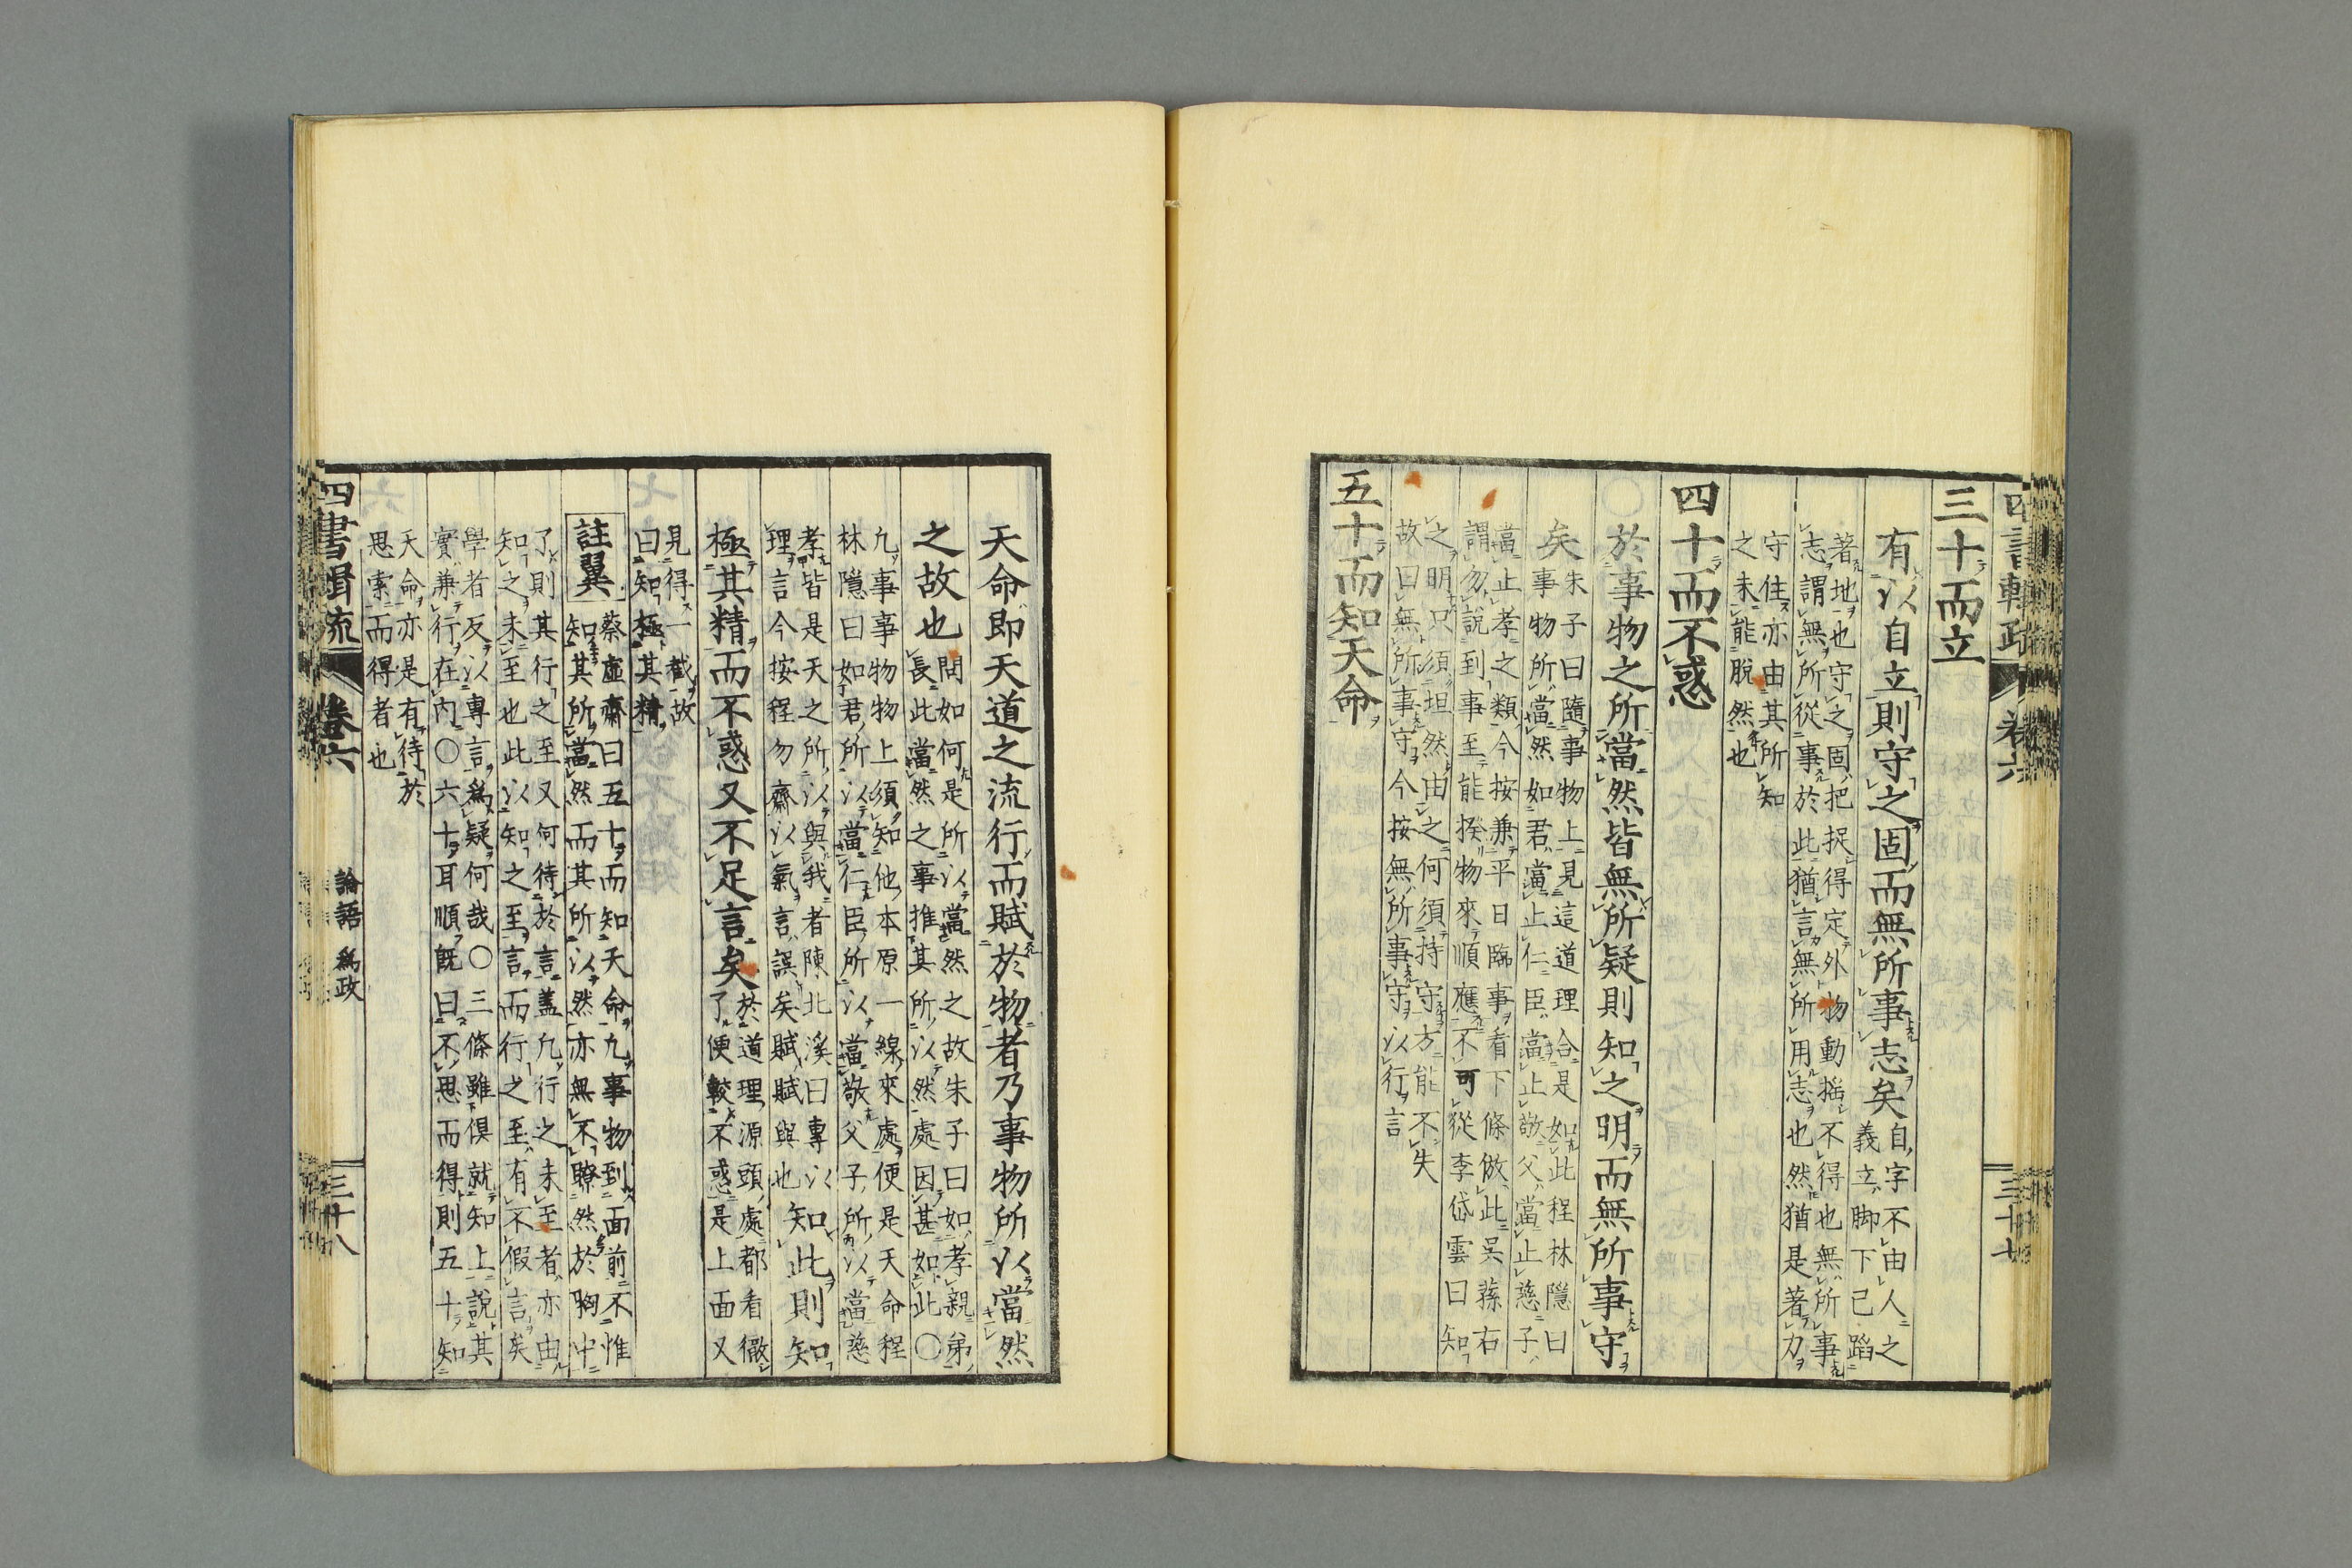 四書輯疏 卷六 三十七
三十而立
有以自立則守之固而無所事志矣
自字不由人之
義立脚下已蹈
著地也守之固把捉得定外物動搖不得也無所事
志謂無所從事於此猶言無所用志也然猶是著力
守住亦由其所知
之未能脫然也
四十而不惑
○於事物之所當然皆無所疑則知之明而無所事守
矣
朱子曰隨事物上見這道理合是如此程林隱曰
事物所當然如君當止仁臣當止敬父當止慈子
當止孝之類今按兼平日臨事看下條倣此吳蓀右
謂勿說到事至能揆物來順應不可從李岱雲曰知
之明只須坦然由之何須持守方能不失
故曰無所事守今按無所事守以行言
五十而知天命
天命即天道之流行而賦於物者乃事物所以當然
之故也
問如何是所以當然之故朱子曰如孝親弟
長此當然之事推其所以然處因甚如此○
凡事事物物上須知他本原一線來處便是天命程
林隱曰如君所以當仁臣所以當敬父子所以當慈
孝皆是天之所以與我者陳北溪曰專以
理言今按程勿齋以氣言誤矣賦賦與也
知此則知
極其精而不惑又不足言矣
於道理源頭處都看徹
了便較不惑是上面又
見得一截故
曰知極其精
註翼
蔡虛齋曰五十而知天命凡事物到面前不惟
知其所當然而其所以然亦無不瞭然於胸中
了則其行之至又何待於言蓋凡行之未至者亦由
知之未至也此以知之至言而行之至有不假言矣
學者反以專言爲疑何哉○三條雖俱就知上說其
實兼行在內○六十耳順既曰不思而得則五十知
天命亦是有待於
思索而得者也
四書輯疏 卷六 論語 爲政 三十八